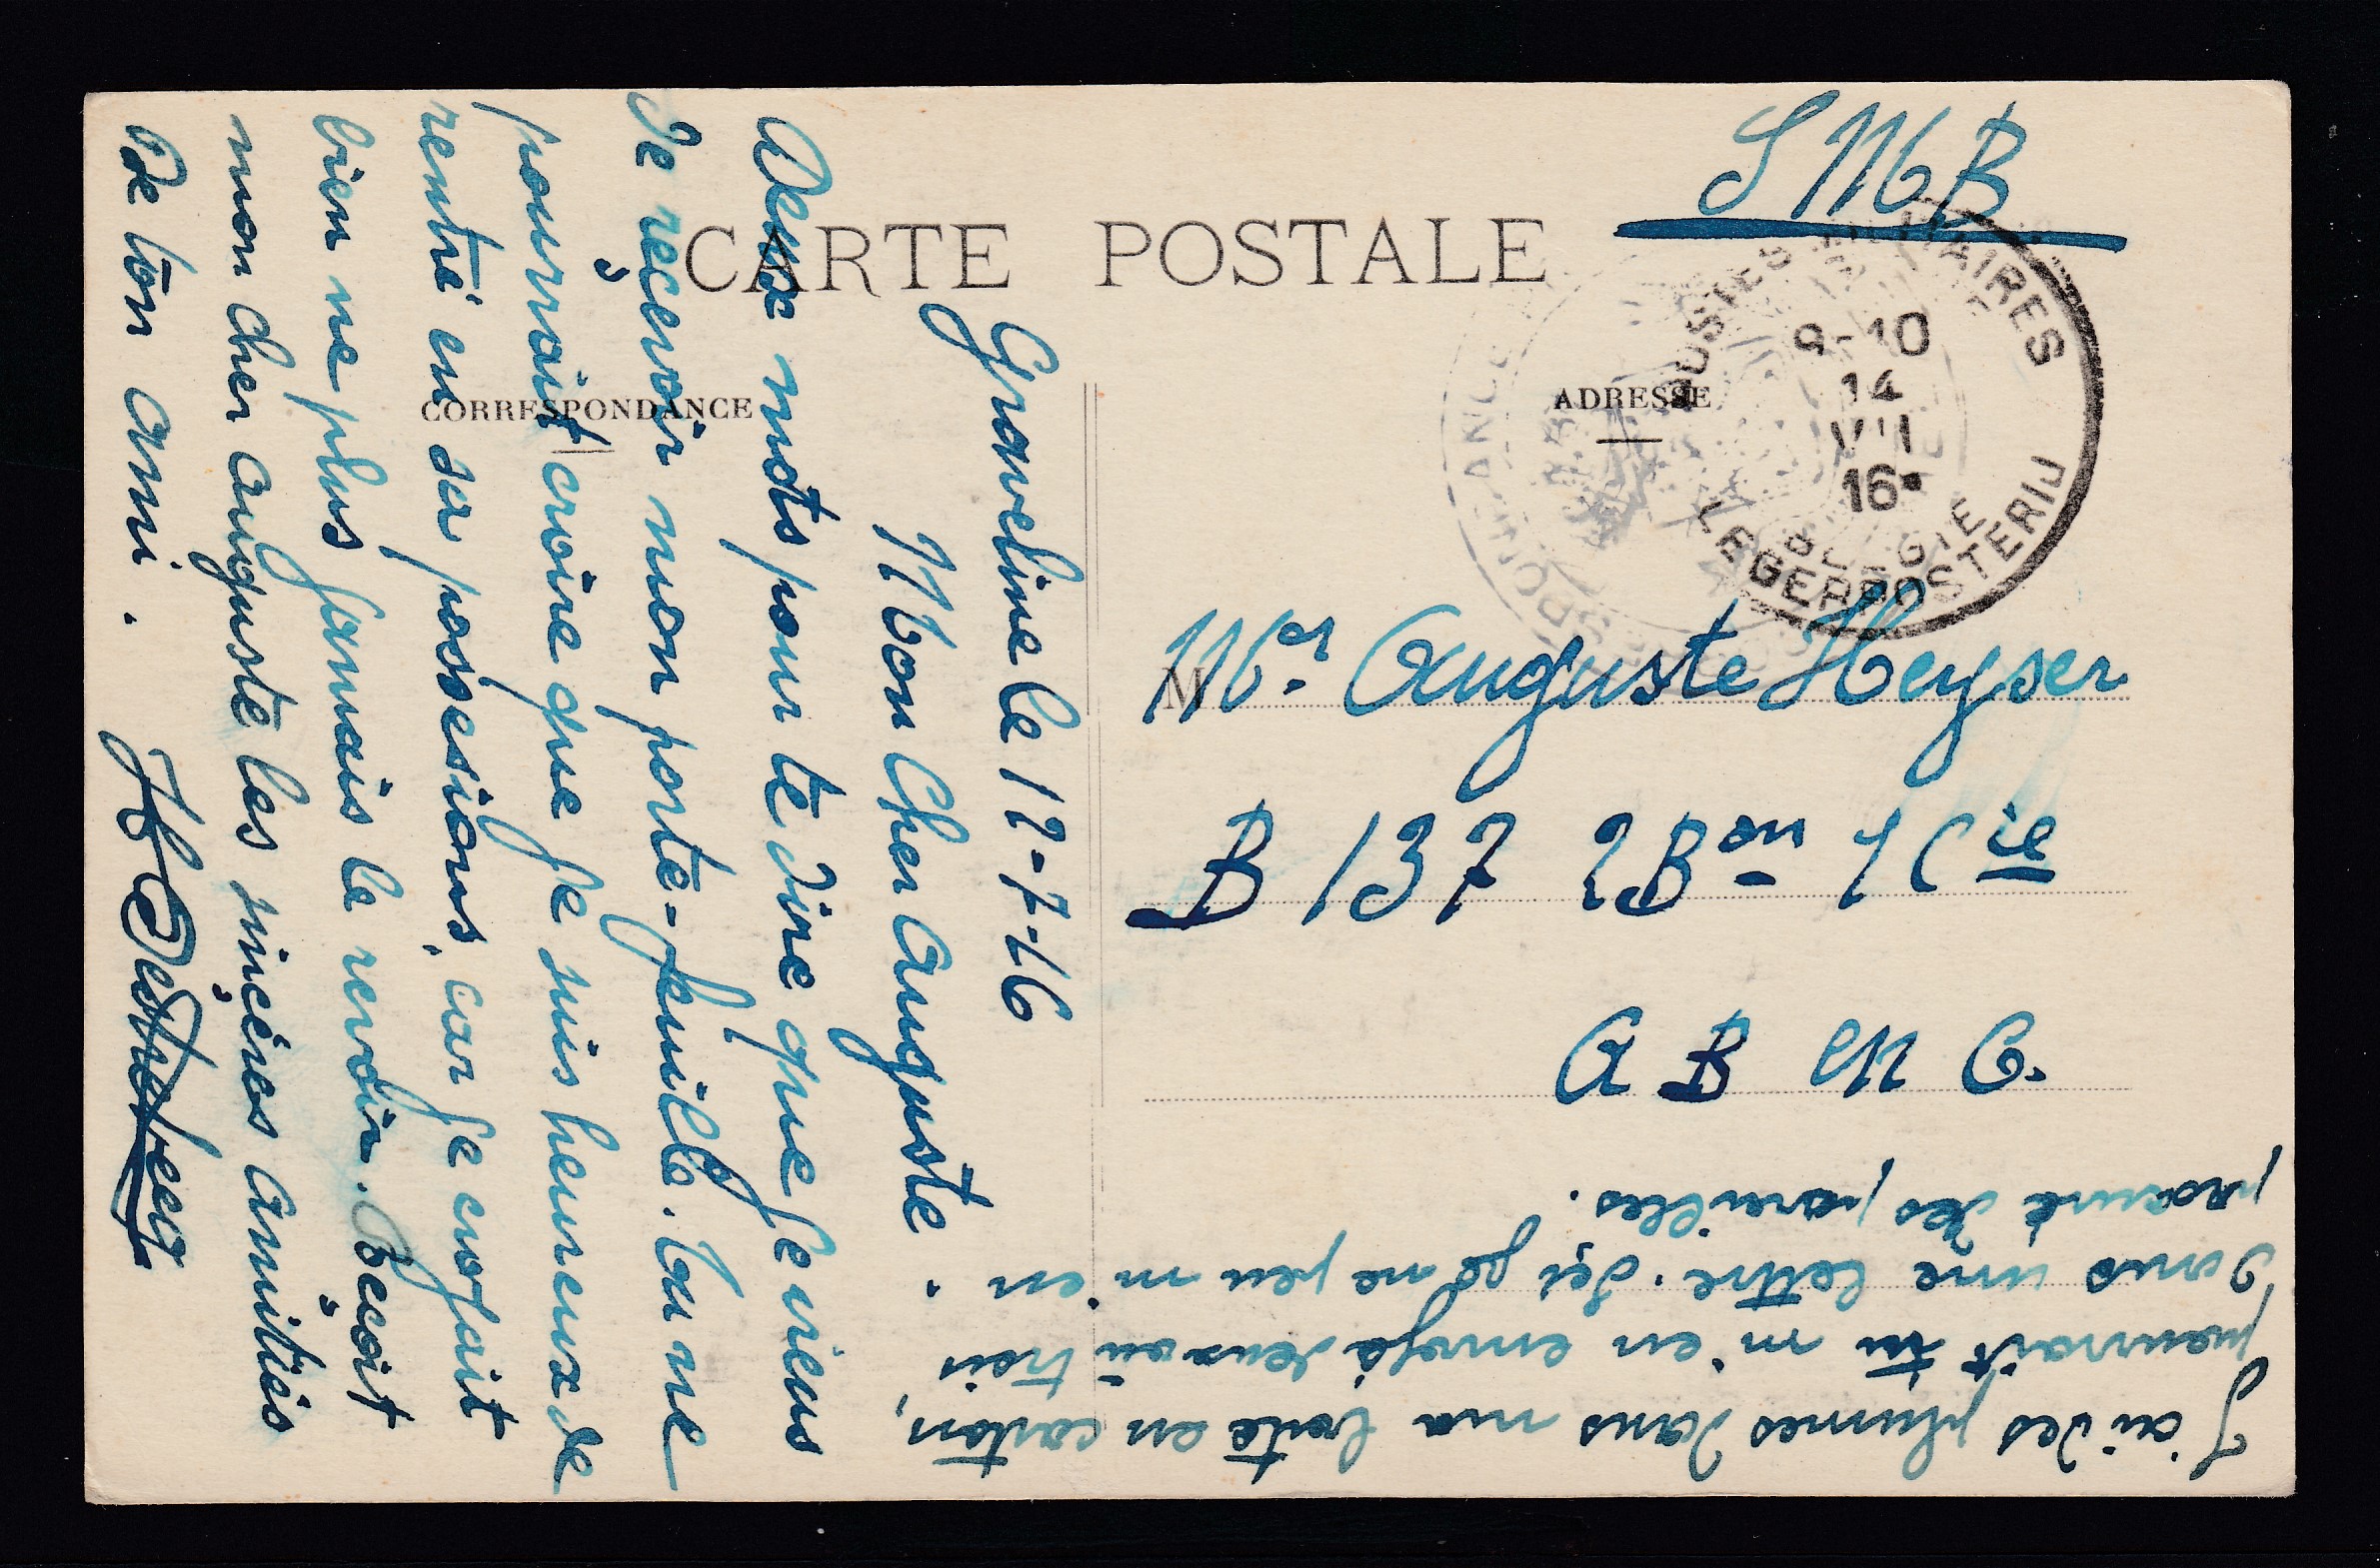 SMB
CARTE POSTALE
CORRESPONDANCE
ADRESSE
POSTES MILITAIRES
9-10
14
VII
16
BELGIE
LEGERPOSTERIJ
M
Mr. Auguste Heyser
B 131
A B M C.
Graveline le 12-7-16
Mon Cher Auguste.
Deux mots pour te dire que je viens
de reçevoir mon porte-feuille. Tu ne
pourrait croire que je suis heureux de
rentré en sa possesions, car je crojait
bien ne plus jamais le revoir. Reçoit
mon cher Auguste les sinçères amitiés
de ton ami.
J'ai des plumes dans ma boite en carton,
pourrait tu m'en envojé deux ou trois
dans une lettre. Içi je ne peu m'en
procuré des pareilles.